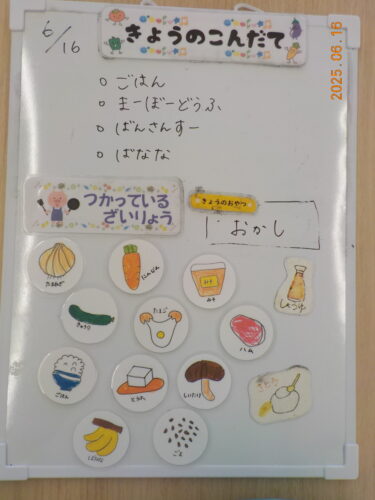 6/16
きょうのこんだて
2025.06.16
○ ごはん
○ まーぼーどうふ
○ ばんさんすー
○ ばなな
つかっている
ざいりょう
きょうのおやつ
おかし
たまねぎ
にんじん
みそ
みそ
しょうゆ
きゅうり
たまご
ハム
ごはん
とうふ
しいたけ
さとう
ばなな
ごま